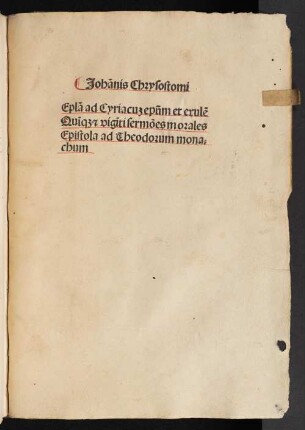 Johānis Chrysostomi
Eplā ad Cyriacuꝫ epm̄ et exulē
Quīqꝫ ⁊ vigīti sermōes morales
Epistola ad Theodorum mona⸗
chum